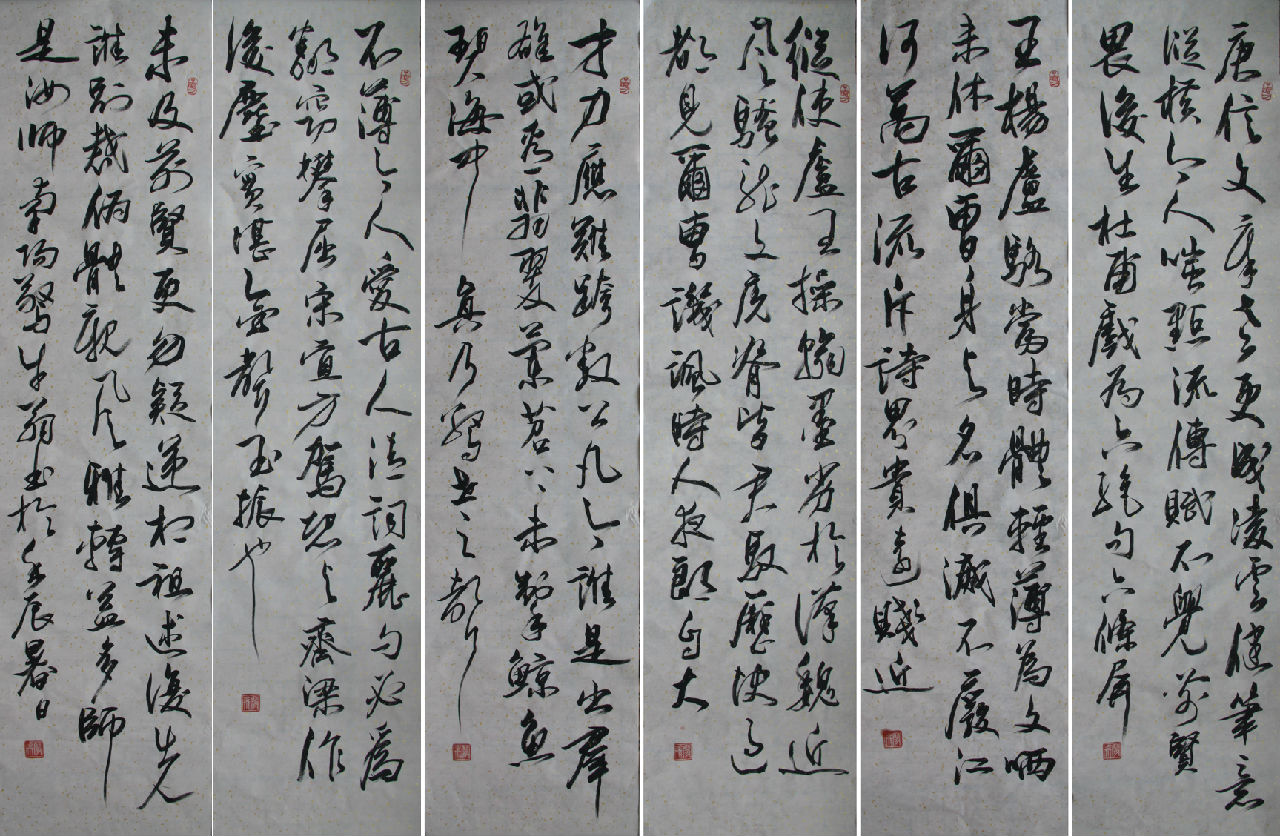 庾信文章老更成凌云健筆意
縱横今人嗤點流傳賦不覺前賢
畏後生杜甫戲為六絶句六條屏
王楊盧駱當時體輕薄為文哂
未休爾曹身与名俱滅不廢江
河萬古流斥詩界貴遠賤近
縱使盧王操翰墨劣於漢魏近
風騷龍文虎脊皆君馭歷塊過
都見爾曹譏諷時人夜郎自大
才力應難跨數公凡今誰是出羣
雄或看翡翠蘭苕上未掣鯨魚
碧海中 真乃警世之
不薄今人愛古人清詞麗句必為
鄰竊攀屈宋宜方駕恐与齊梁作
後塵實堪金聲玉振也
未及前賢更勿疑遞相祖述復先
誰别裁偽體親風雅轉益多師
是汝師 牛翁书於壬辰暑日